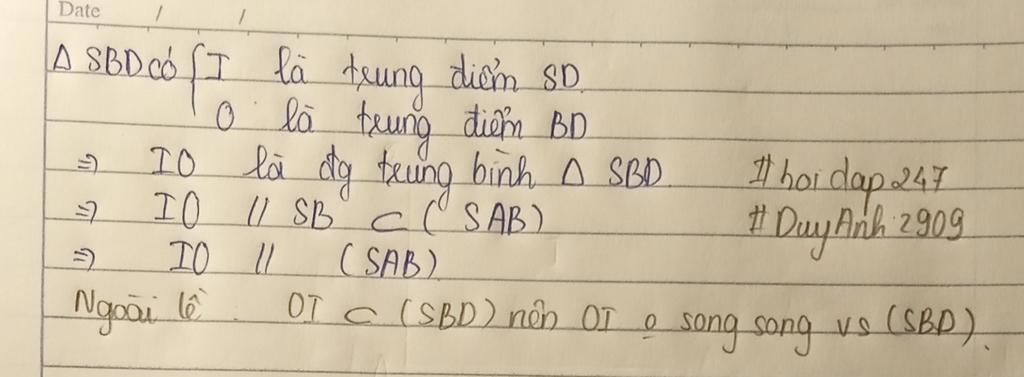 Date / /
Δ SBD có { I là trung điểm SD.
O là trung điểm BD
=> IO là đg trung bình Δ SBD. #hoidap247
=> IO // SB ⊂ (SAB) #DuyAnh2909
=> IO // (SAB)
Ngoài lề. OI ⊂ (SBD) nên OI o song song vs (SBD).